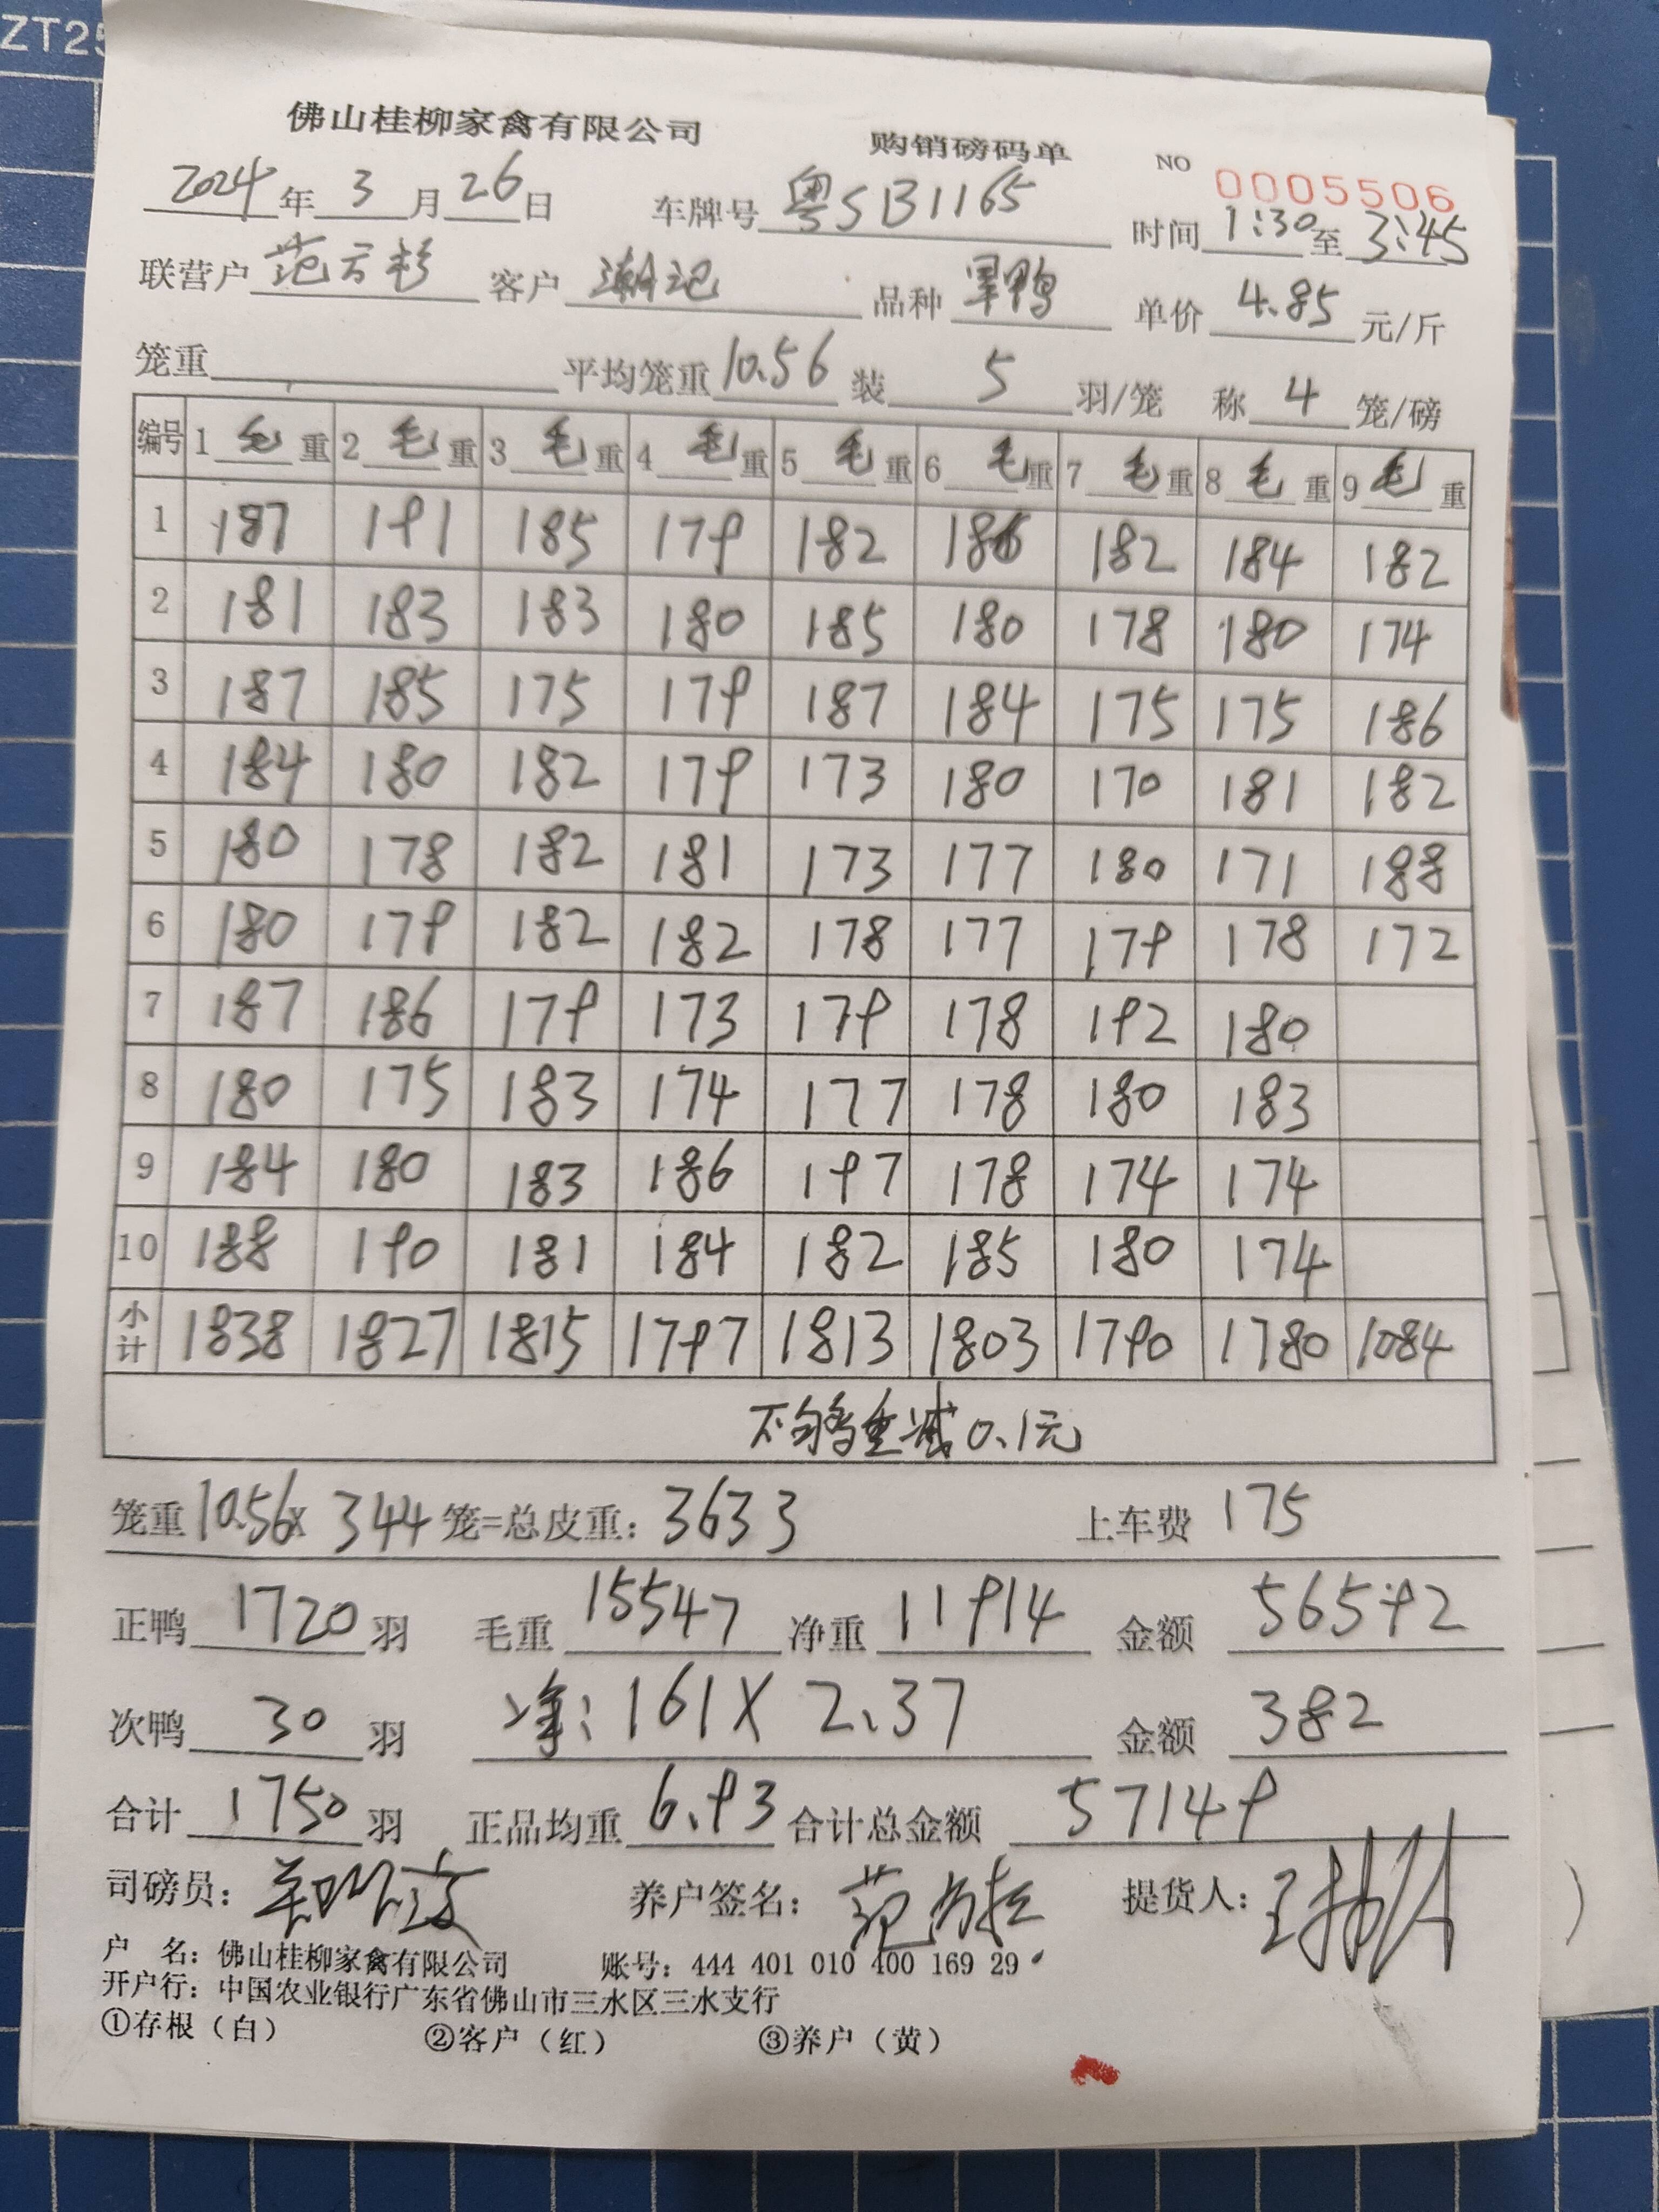 ZT25
佛山桂柳家禽有限公司 购销磅码单 NO 0005506
2024年3月26日 车牌号 粤SB1165 时间 1:30至3:45
联营户 范云彬 客户 潮记 品种 旱鸭 单价 4.85 元/斤
笼重 平均笼重 10.56 装 5 羽/笼 称 4 笼/磅
编号 1毛重 2毛重 3毛重 4毛重 5毛重 6毛重 7毛重 8毛重 9毛重
1 187 191 185 179 182 186 182 184 182
2 181 183 183 180 185 180 178 180 174
3 187 185 175 179 187 184 175 175 186
4 184 180 182 179 173 180 170 181 182
5 180 178 182 181 173 177 180 171 188
6 180 179 182 182 178 177 179 178 172
7 187 186 179 173 179 178 192 180
8 180 175 183 174 177 178 180 183
9 184 180 183 186 197 178 174 174
10 188 190 181 184 182 185 180 174
小计 1838 1827 1815 1797 1813 1803 1790 1780 1084
不够重减0.1元
笼重10.56x 344笼=总皮重：3633 上车费 175
正鸭 1720 羽 毛重 15547 净重 11914 金额 56592
次鸭 30 羽 净：161X 2.37 金额 382
合计 1750 羽 正品均重 6.93 合计总金额 57149
司磅员： 养户签名：范 提货人：
户 名：佛山桂柳家禽有限公司 账号：444 401 010 400 169 29
开户行：中国农业银行广东省佛山市三水区三水支行
①存根（白） ②客户（红） ③养户（黄）